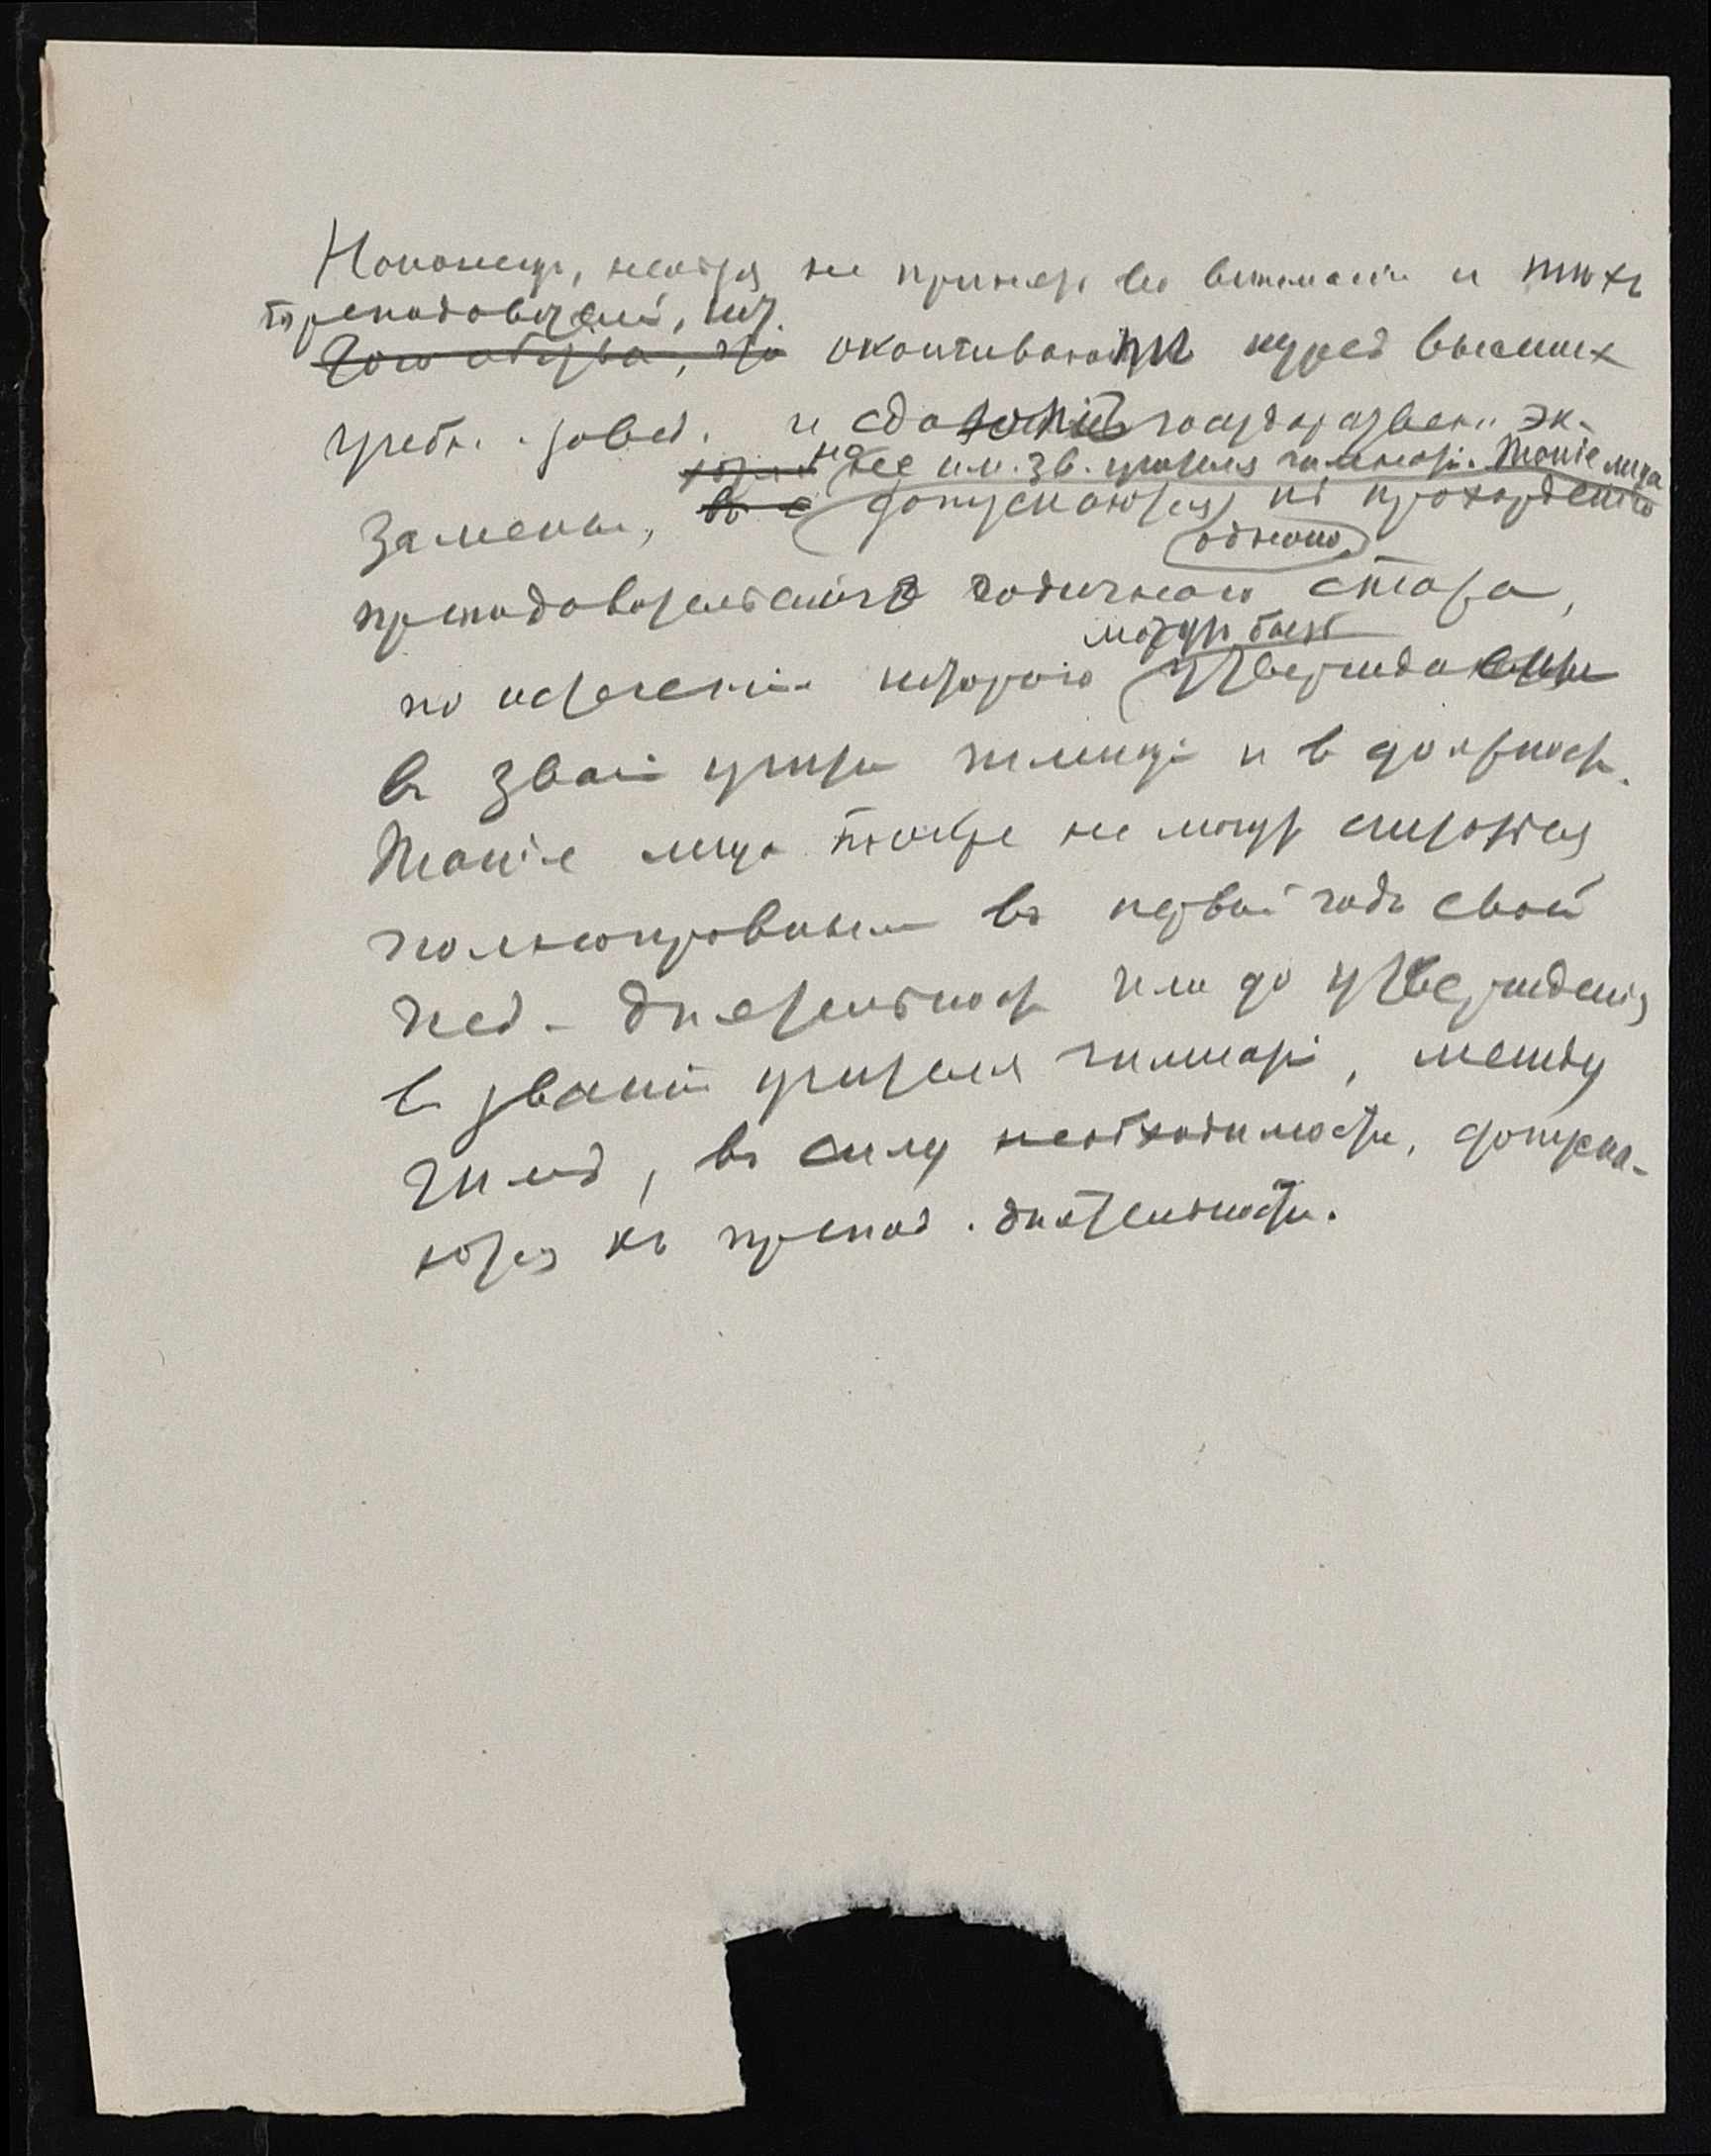 Наконецъ, нельзя не принять во вниманіе и тѣхъ
преподавателей, кот.
того обст-ва, что окончивающіе курсъ высшихъ
учебн. завед. и сдавшіе государствен. эк-
но не им. зв. учителя гимназіи. Такіе лица
замены, допускаются къ прохожденію
однако
преподавательскаго годичнаго стажа,
могутъ быть
по истеченіи котораго утверждены
въ званіи учителя гимназіи и въ должности.
Такіе лица также не могутъ считаться
полноправными въ первый годъ своей
пед. дѣятельности или до утвержденія
въ званіи учителя гимназіи, между
тѣмъ, въ силу необходимости, допуска-
ются къ препод. дѣятельности.